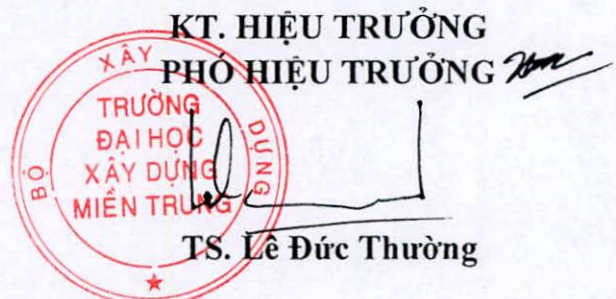 KT. HIỆU TRƯỞNG
PHÓ HIỆU TRƯỞNG
BỘ XÂY DỰNG
TRƯỜNG
ĐẠI HỌC
XÂY DỰNG
MIỀN TRUNG
TS. Lê Đức Thường